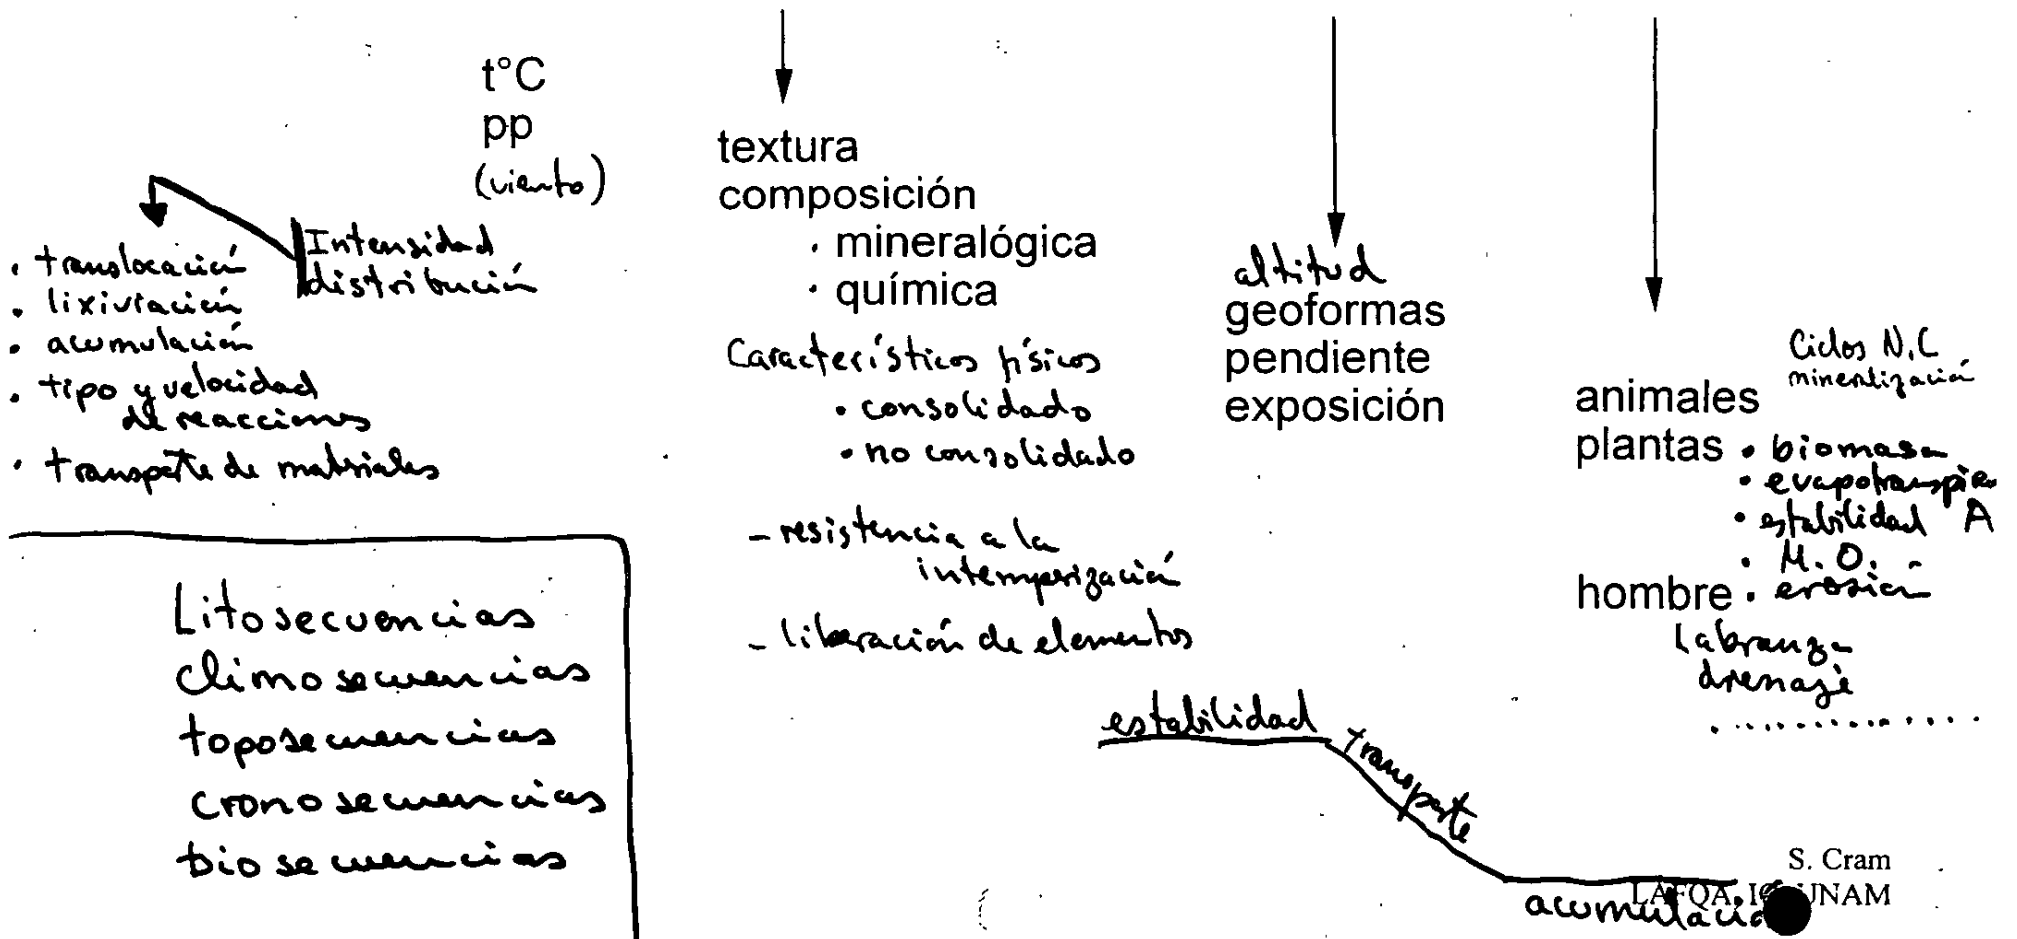 t°C
pp
(viento)
Intensidad
distribución
· translocación
· lixiviación
· acumulación
· tipo y velocidad
de reacciones
· transporte de materiales
Litosecuencias
climosecuencias
toposecuencias
cronosecuencias
biosecuencias
textura
composición
· mineralógica
· química
Característicos físicos
· consolidado
· no consolidado
- resistencia a la
intemperización
- liberación de elementos
altitud
geoformas
pendiente
exposición
Ciclos N, C
mineralización
animales
plantas
· biomasa
· evapotranspir
· estabilidad A
· M.O.
hombre · erosión
labranza
drenaje
..............
estabilidad
transporte
acumulació
S. Cram
LAFQA, IG, UNAM